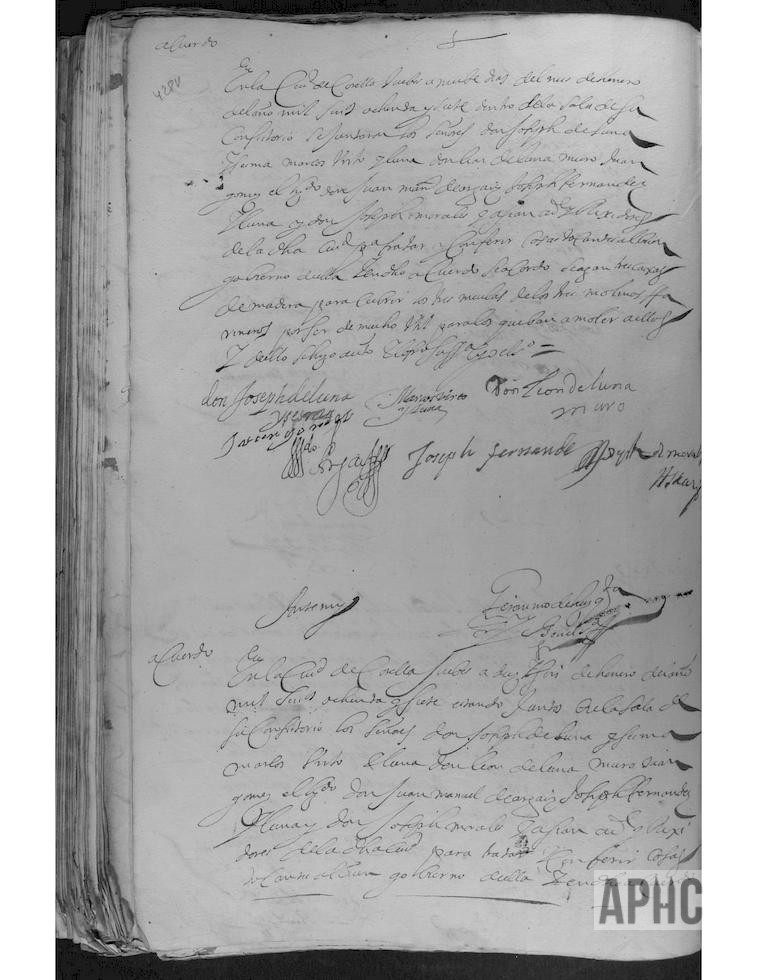 acuerdo
428v
En la Ciud de Corella Juebes a nuebe dias del mes de henero
del año mil seis ochenta y siete dentro de la sala de su
Consistorio se juntaron los señores don Joseph de luna
y sesma marcos Virto y luna don leon de luna muro Juan
gomez el don Juan man de argaiz Joseph fernandez
y luna y don Joseph morales
de la dha Ciud para tratar y Conferir cosas tocantes al buen
gobierno della y en dho acuerdo se acordo se agan tres caxas
de madera para cubrir las tres muelas de los tres molinos ha
rineros por ser de mucho Util para los que ban a moler a ellos
y dello se hizo auto
don Joseph de luna
y sesma
Marcos Virto
y luna
Don Leon de luna
muro
Joseph fernande
Joseph de moral
Ante mi
acuerdo
En la Ciud de Corella Juebes a de henero del año
mil seis ochenta y siete estando Junto en la sala de
su Consistorio los señores don Joseph de luna y sesma
marcos Virto y luna don leon de luna muro Juan
gomez el don Juan manuel de argaiz Joseph fernandez
y luna y don Joseph morales
dores de la dha Ciud para tratar y Conferir cosas
tocantes al buen gobierno della y en dho acuerdo
APHC